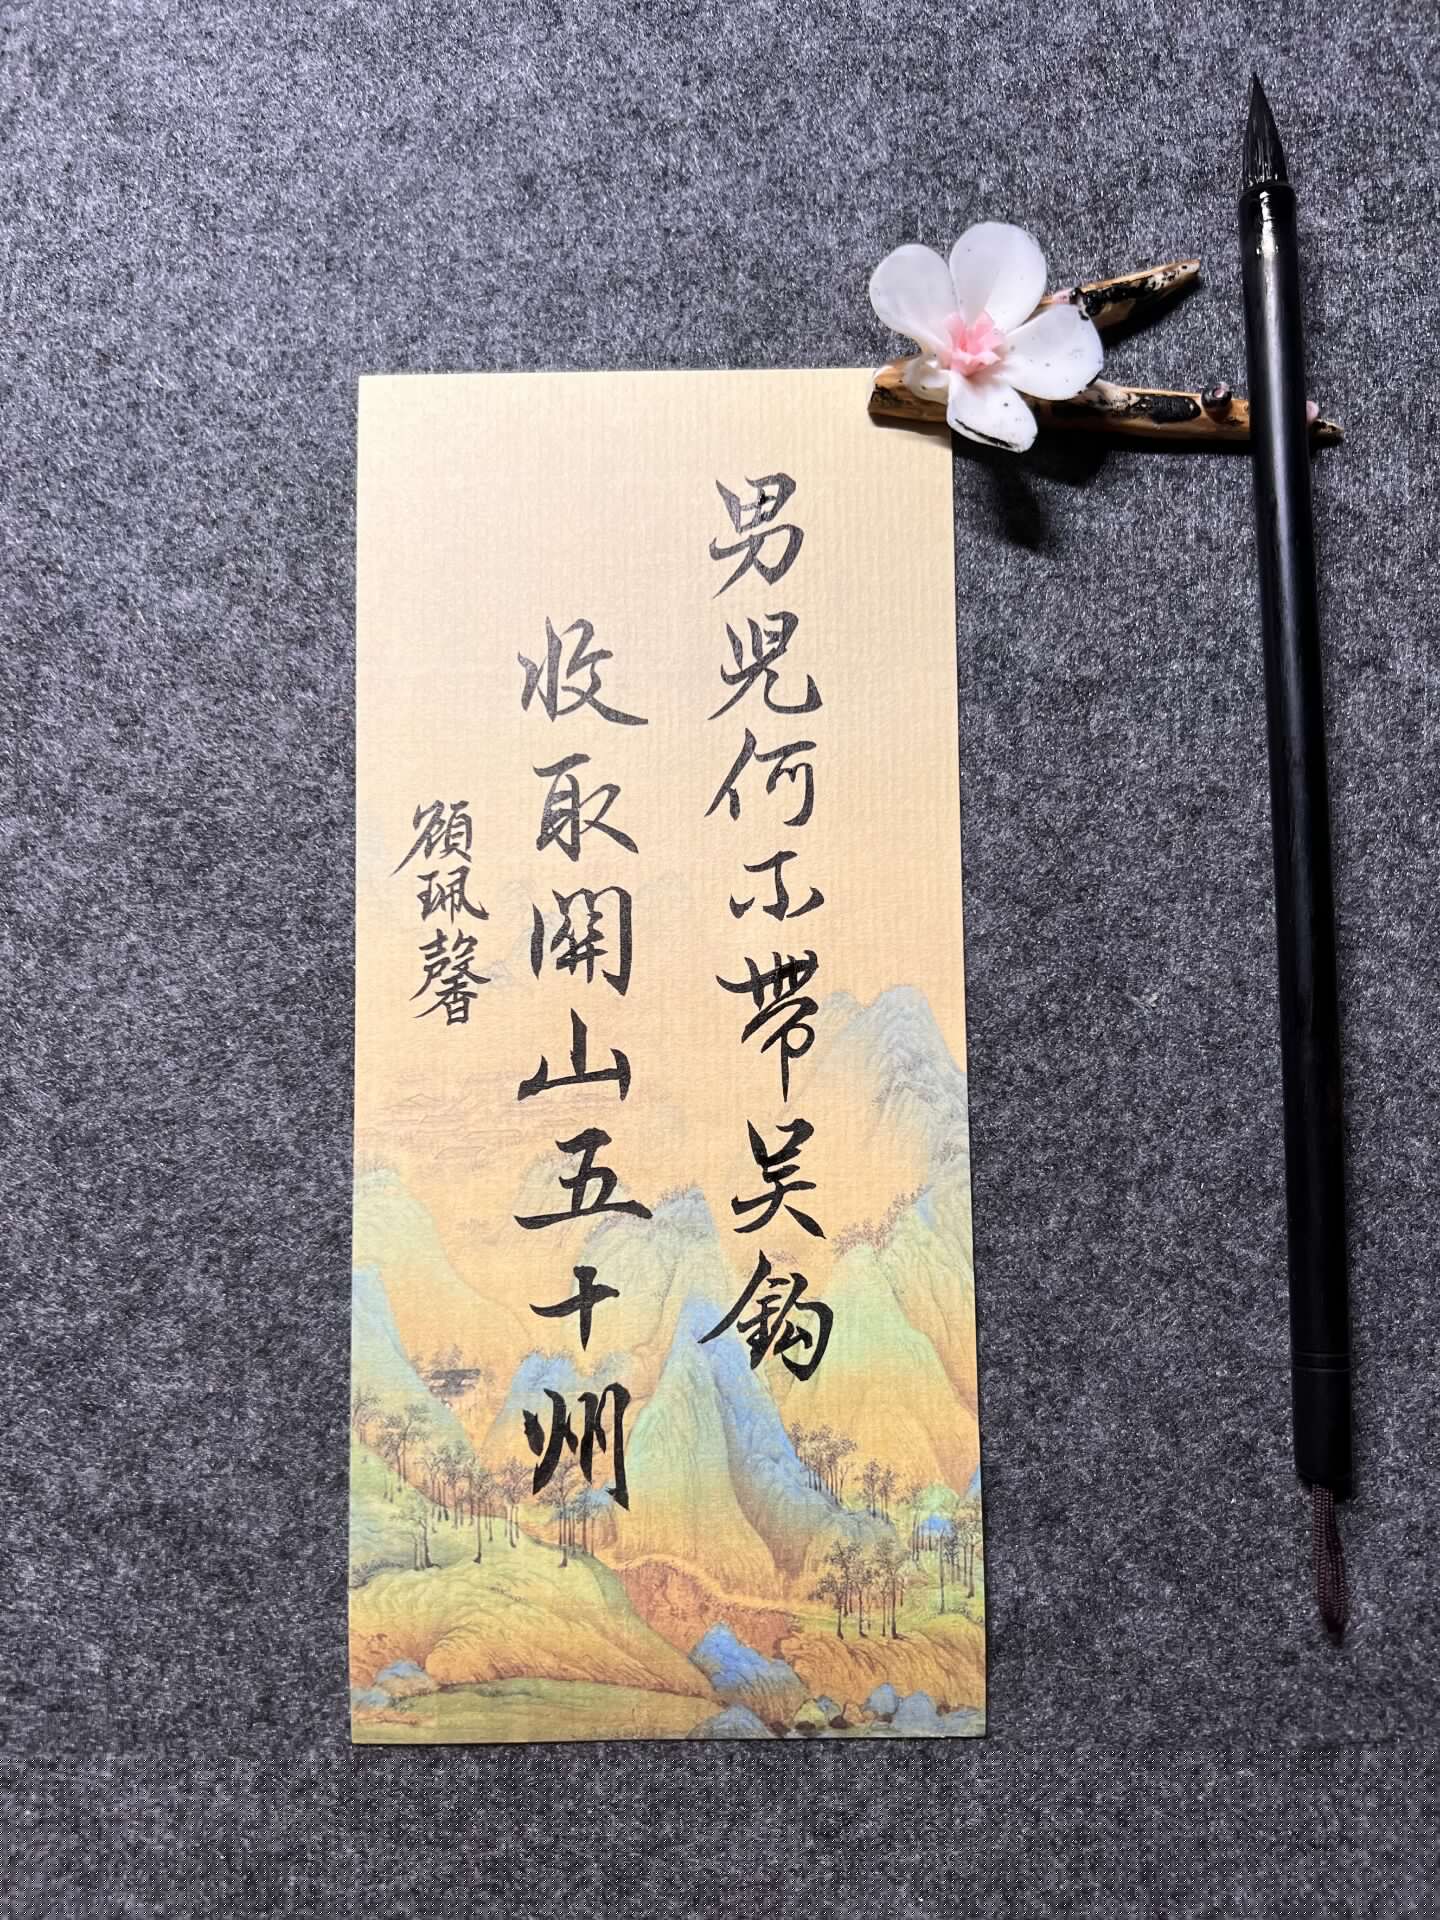 男児何不帶吴鈎
收取關山五十州
顧珮馨